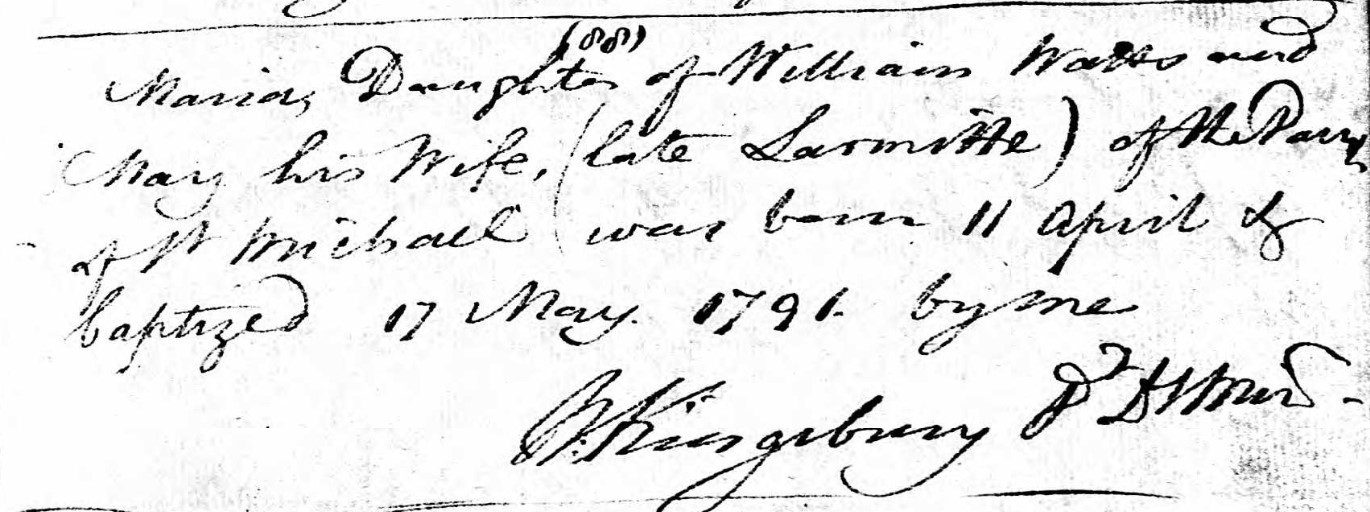 (88)
Maria, Daughter of William Watts and
Mary his Wife, (late Larmitte) of the Parish
of St Michael was born 11 April &
baptized 17 May. 1791. by me
Kingsbury